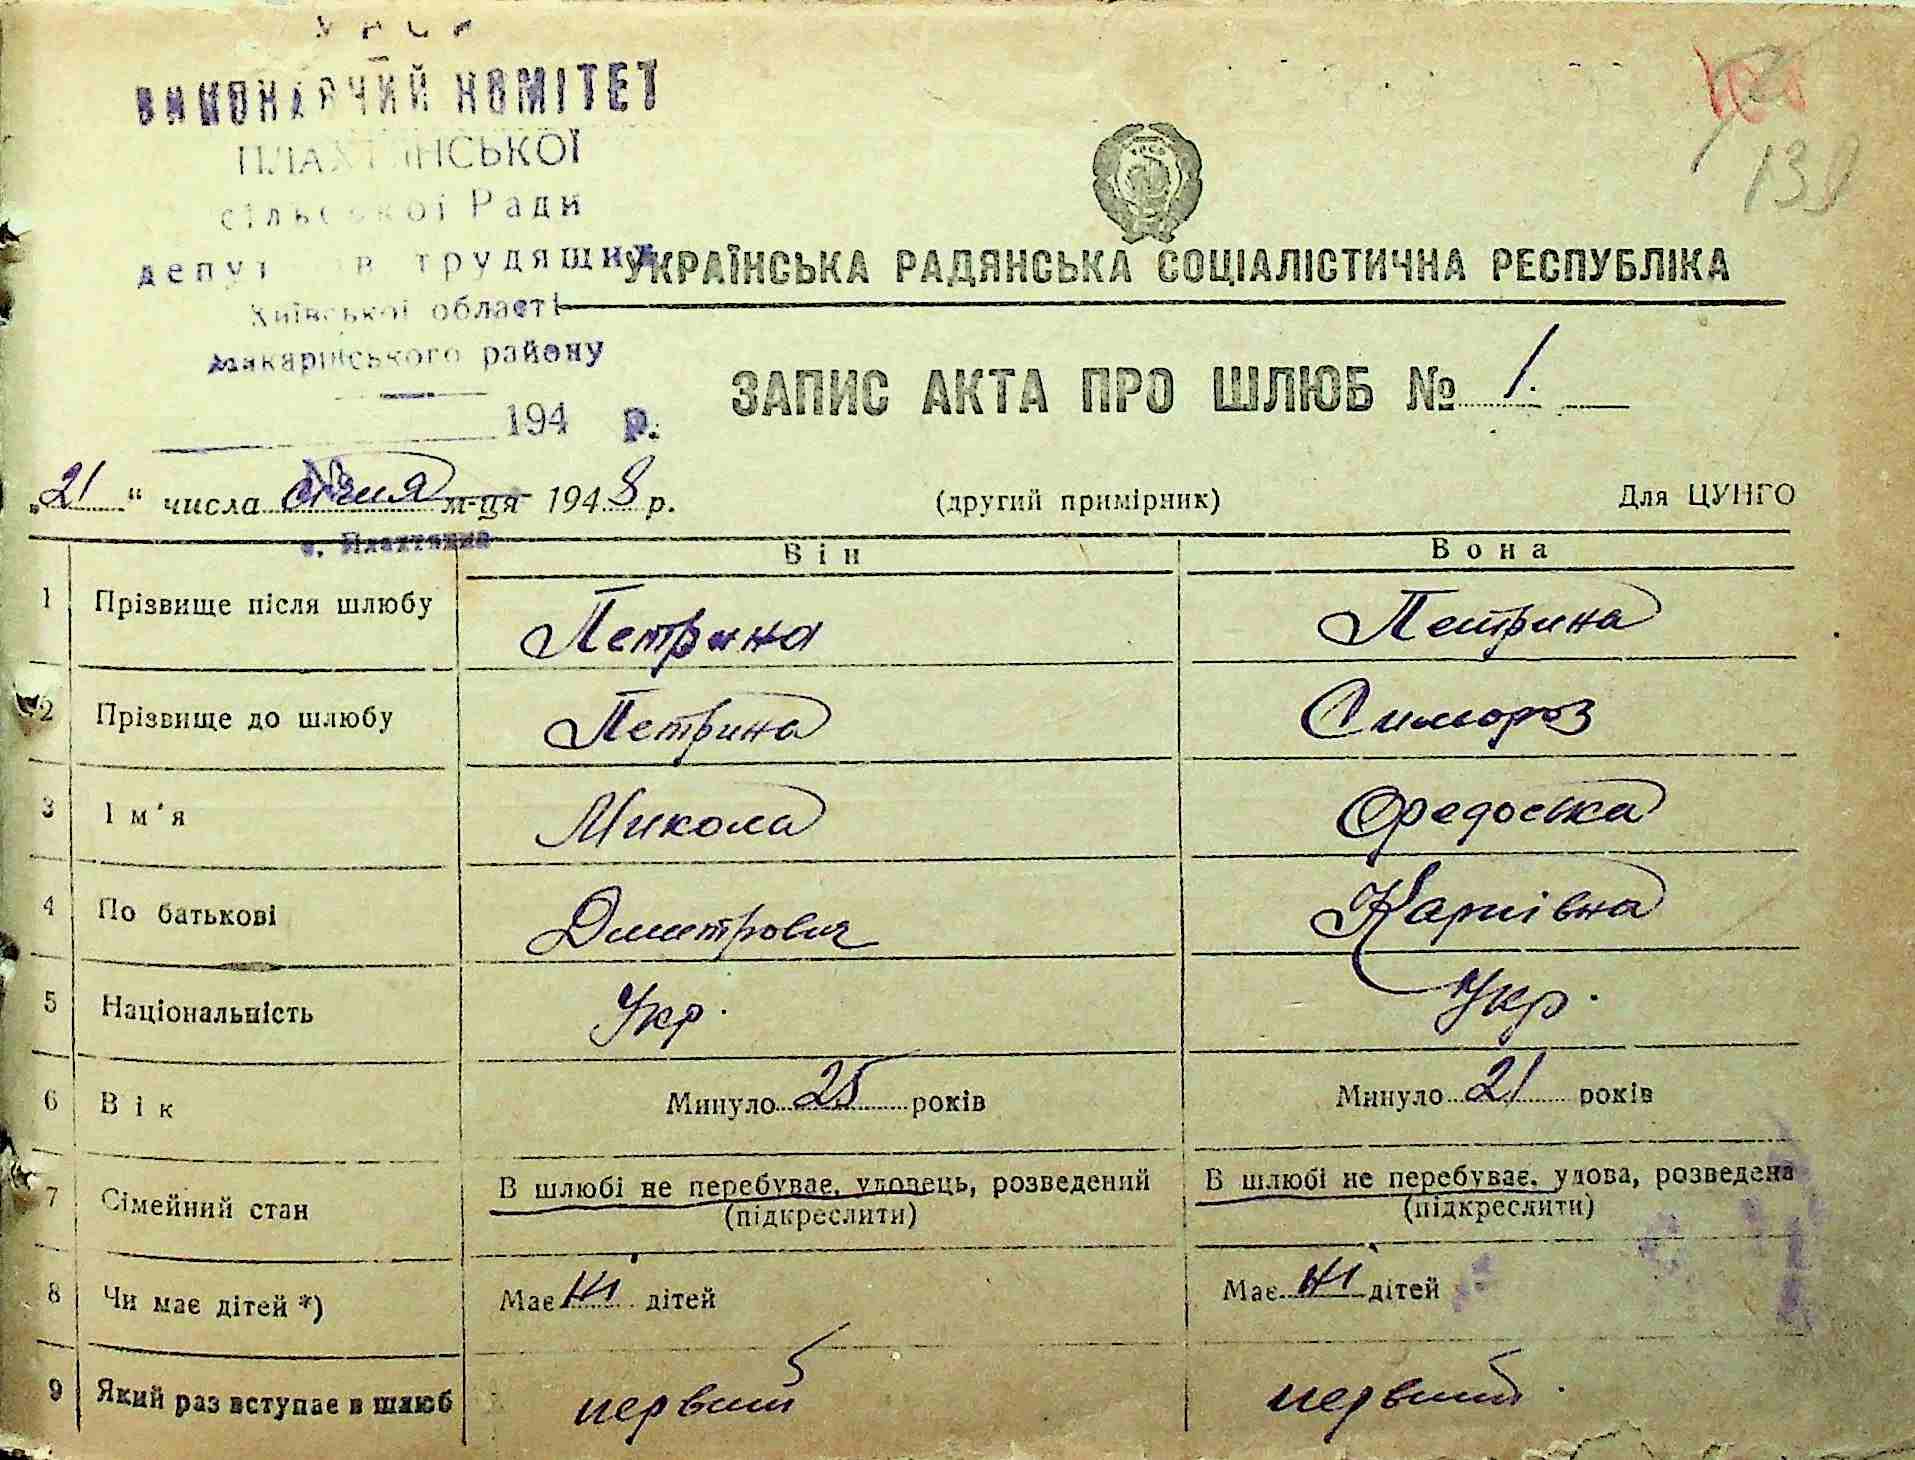 УРСР
ВИКОНАВЧИЙ КОМІТЕТ
ПЛАХТЯНСЬКОЇ
сільської Ради
депутатів трудящих
Київської області
Макарівського району
194 р.
139
УКРАЇНСЬКА РАДЯНСЬКА СОЦІАЛІСТИЧНА РЕСПУБЛІКА
ЗАПИС АКТА ПРО ШЛЮБ № 1.
„21“ числа січня м-ця 1948 р. (другий примірник) Для ЦУНГО
с. Плахтянка
Він Вона
1 Прізвище після шлюбу Петрина Петрина
2 Прізвище до шлюбу Петрина Симороз
3 Ім'я Микола Фредоська
4 По батькові Дмитрович Карпівна
5 Національність Укр. Укр.
6 Вік Минуло 25 років Минуло 21 років
7 Сімейний стан В шлюбі не перебуває, удовець, розведений В шлюбі не перебуває, удова, розведена
(підкреслити) (підкреслити)
8 Чи має дітей *) Має ні дітей Має ні дітей
9 Який раз вступає в шлюб первий первий.